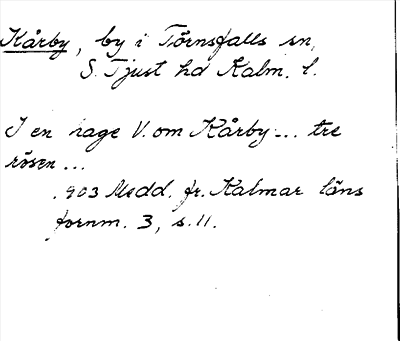 Kårby, by i Törnsfalls sn,
S. Tjust hd Kalm. l.
I en hage V. om Kårby ... tre
rösen ...
.903 Medd. fr. Kalmar läns
fornm. 3, s. 11.